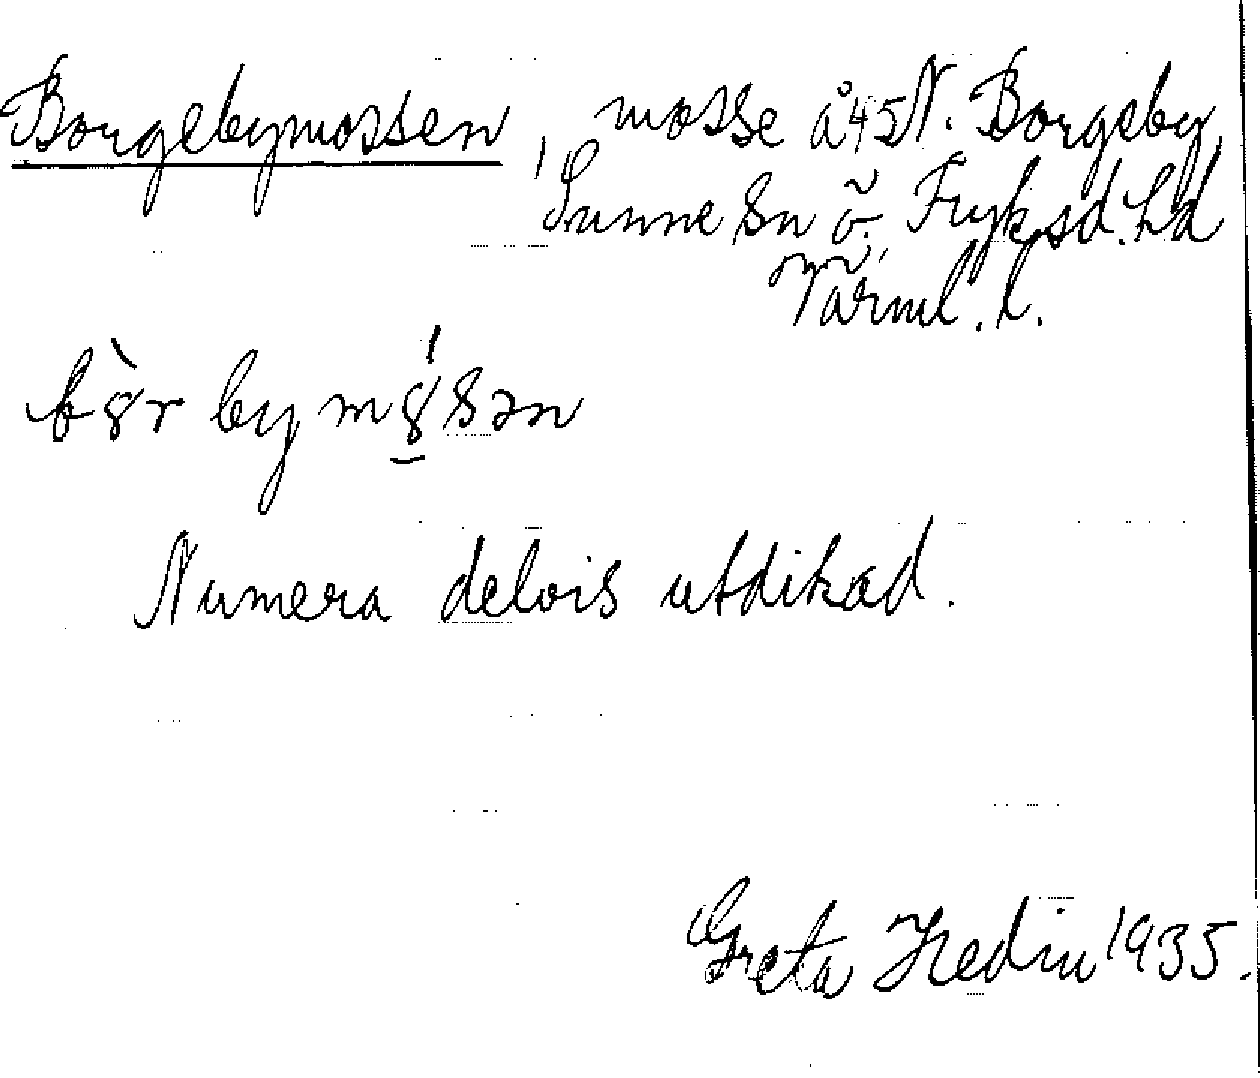 Borgebymossen, mosse å 45 N. Borgeby,
Sunne sn ö. Fryksd. hd
Värml. l.
bȣ̀r bymȣ́sən
Numera delvis utdikad.
Greta Hedin 1935.